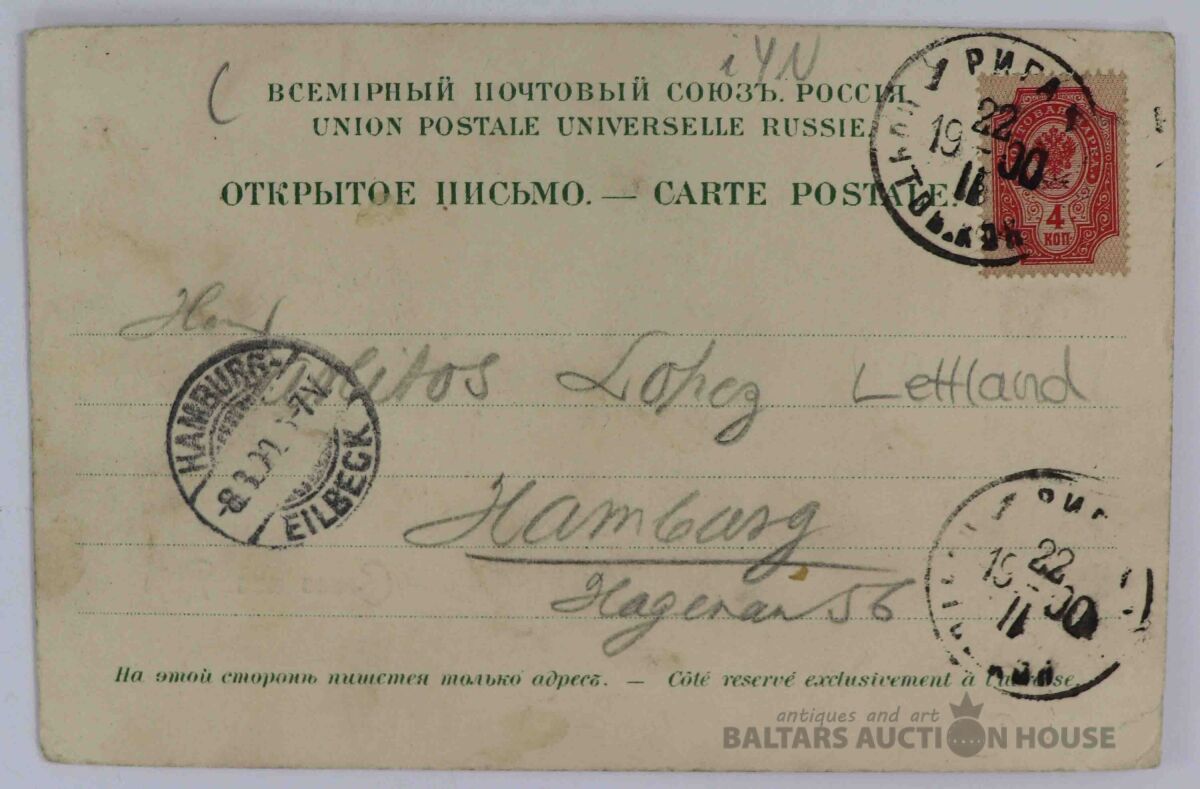 ВСЕМІРНЫЙ ПОЧТОВЫЙ СОЮЗЪ. РОССІЯ.
UNION POSTALE UNIVERSELLE RUSSIE.
ОТКРЫТОЕ ПИСЬМО. — CARTE POSTALE.
РИГА
22
1900
II
4
КОП
Lopez Lettland
HAMBURG-
EILBECK
Hamburg
Hagenau 56
РИГ
22
1900
II
На этой сторонѣ пишется только адресъ. — Côté reservé exclusivement à l'adresse.
antiques and art
BALTARS AUCTION HOUSE